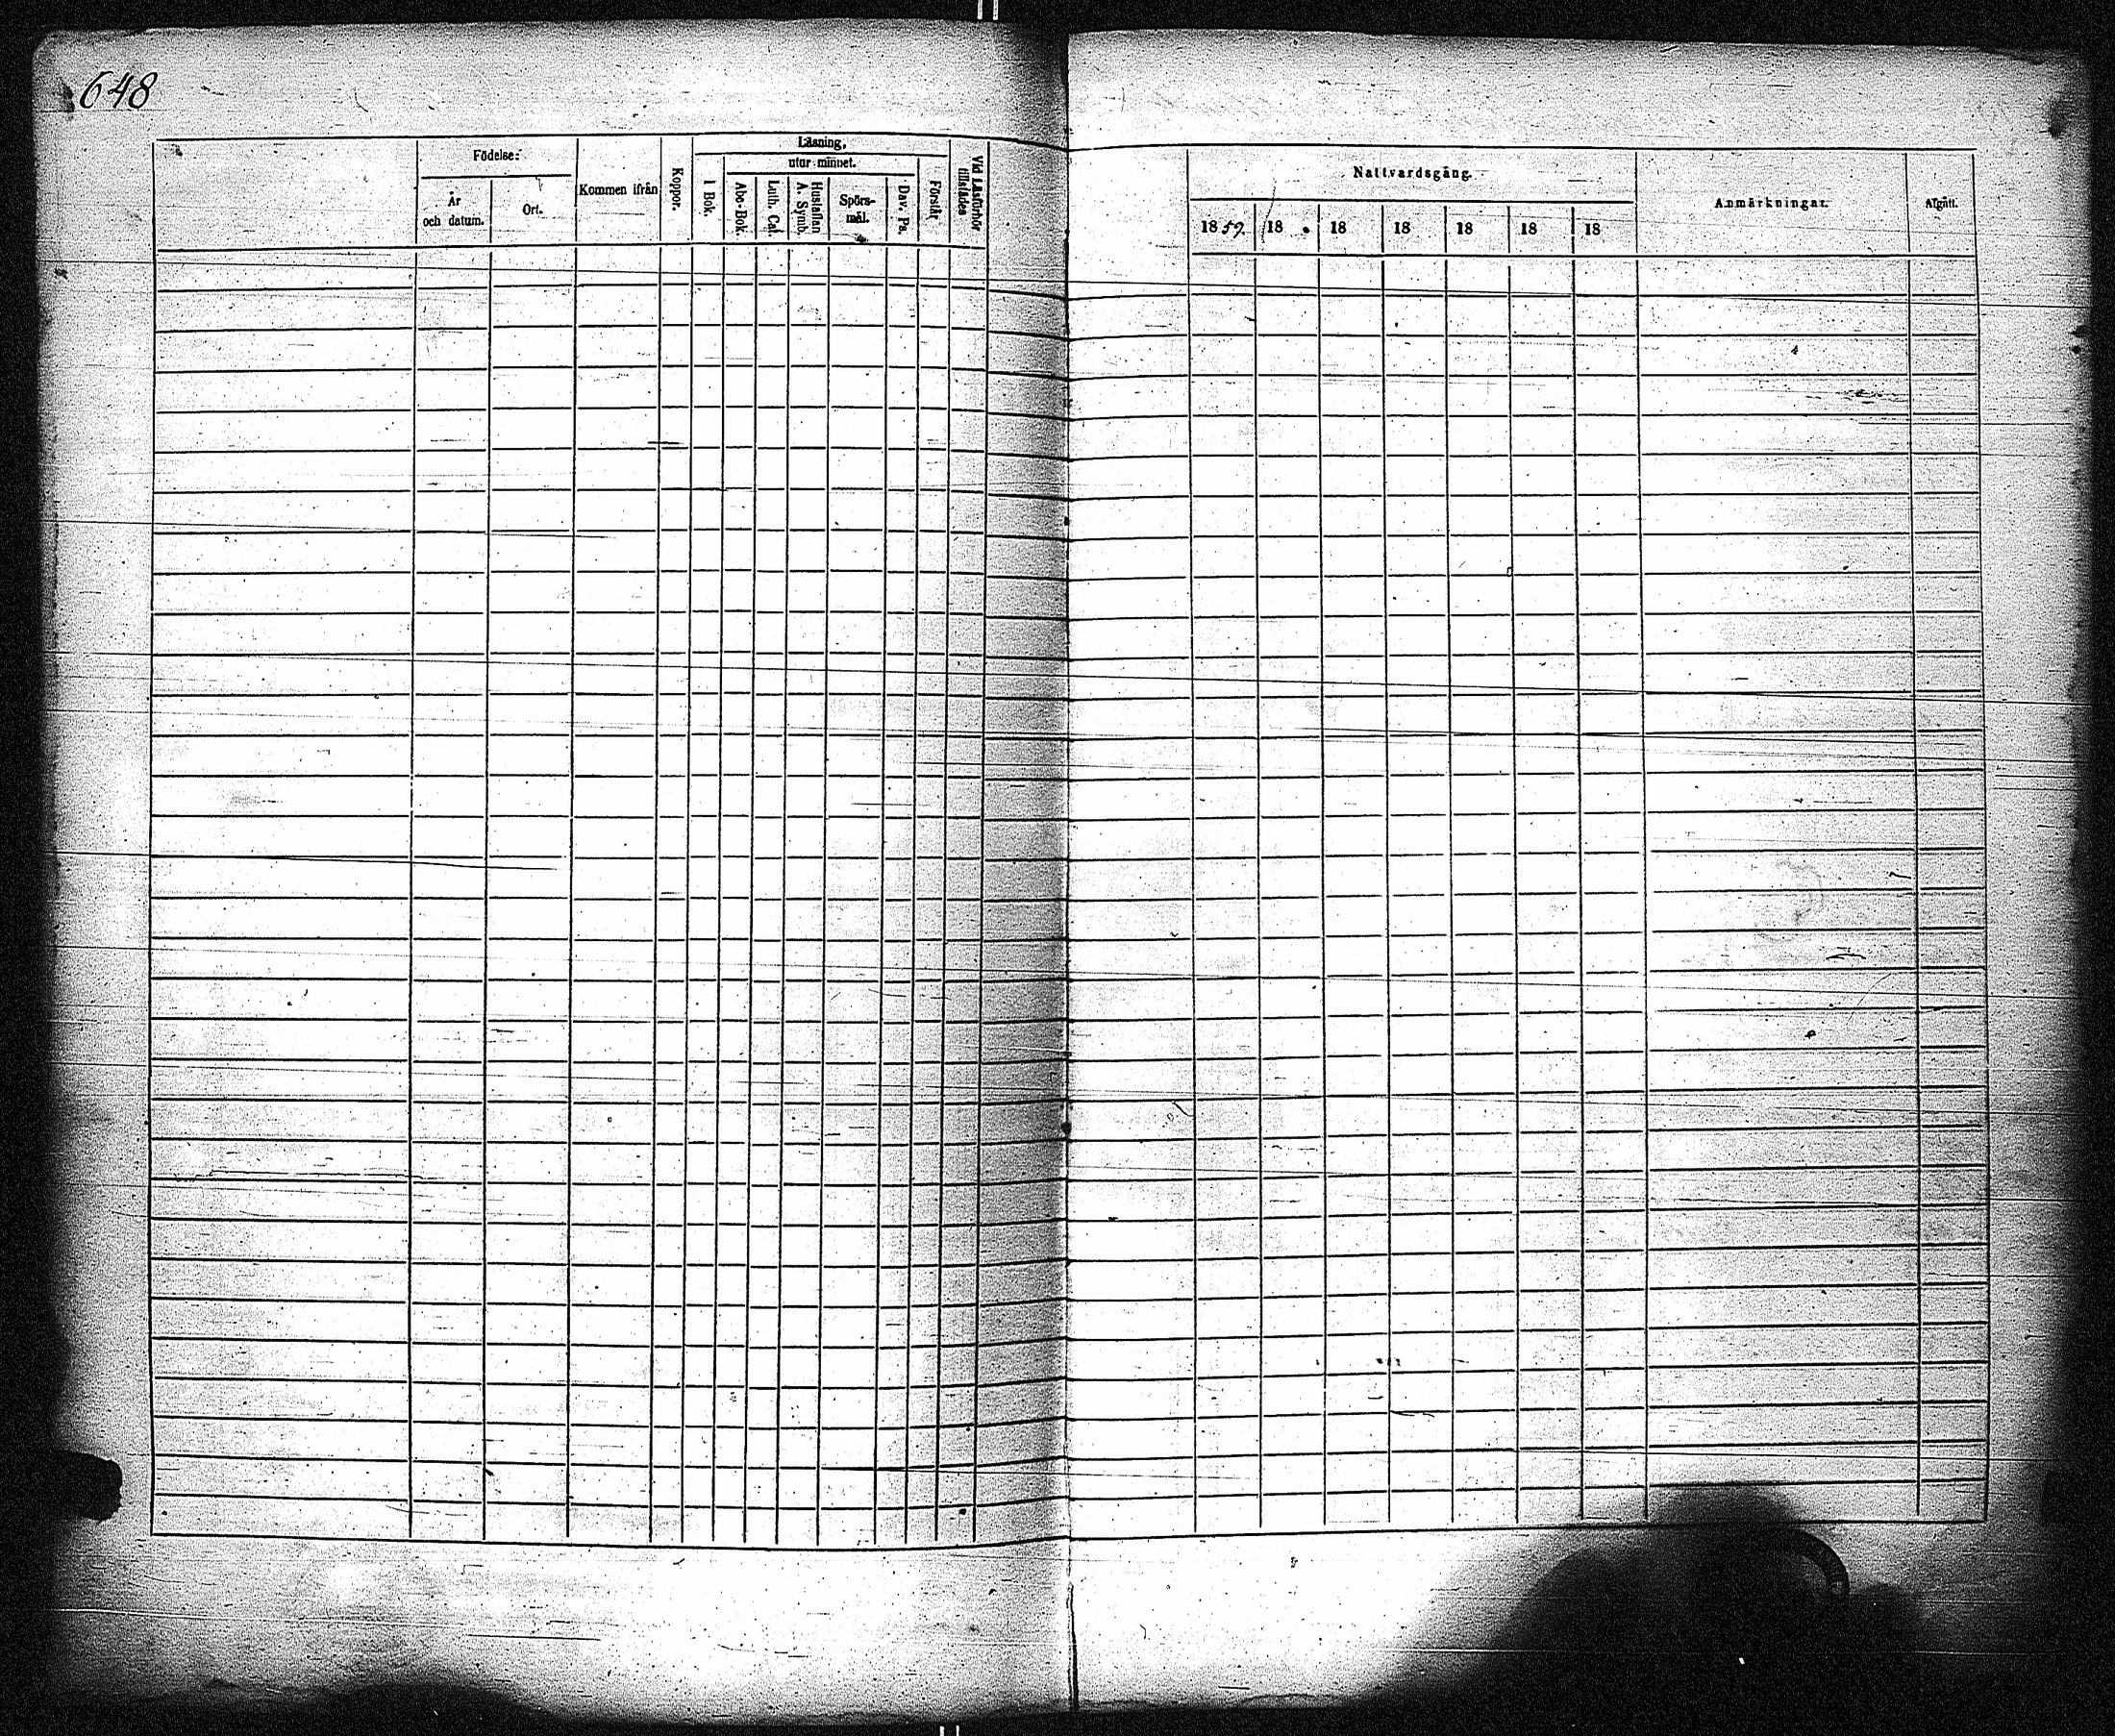 648
Födelse:
År
och datum.
Ort.
Kommen ifrån
Koppor.
Läsning,
I Bok.
utur minnet.
Abc-Bok.
Luth. Cat.
Hustaflan
A. Symb.
Spörs-
mål.
Dav. Ps.
Förstår
Vid Läsförhör
tillstädes
Nattvardsgång.
1859. 18 18 18 18 18 18
Anmärkningar.
Afgått.